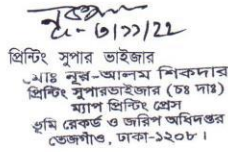 ৬/১১/২২
প্রিন্টিং সুপার ভাইজার
মোঃ নূর-আলম শিকদার
প্রিন্টিং সুপারভাইজার (চঃ দাঃ)
ম্যাপ প্রিন্টিং প্রেস
ভূমি রেকর্ড ও জরিপ অধিদপ্তর
তেজগাঁও, ঢাকা-১২০৮।